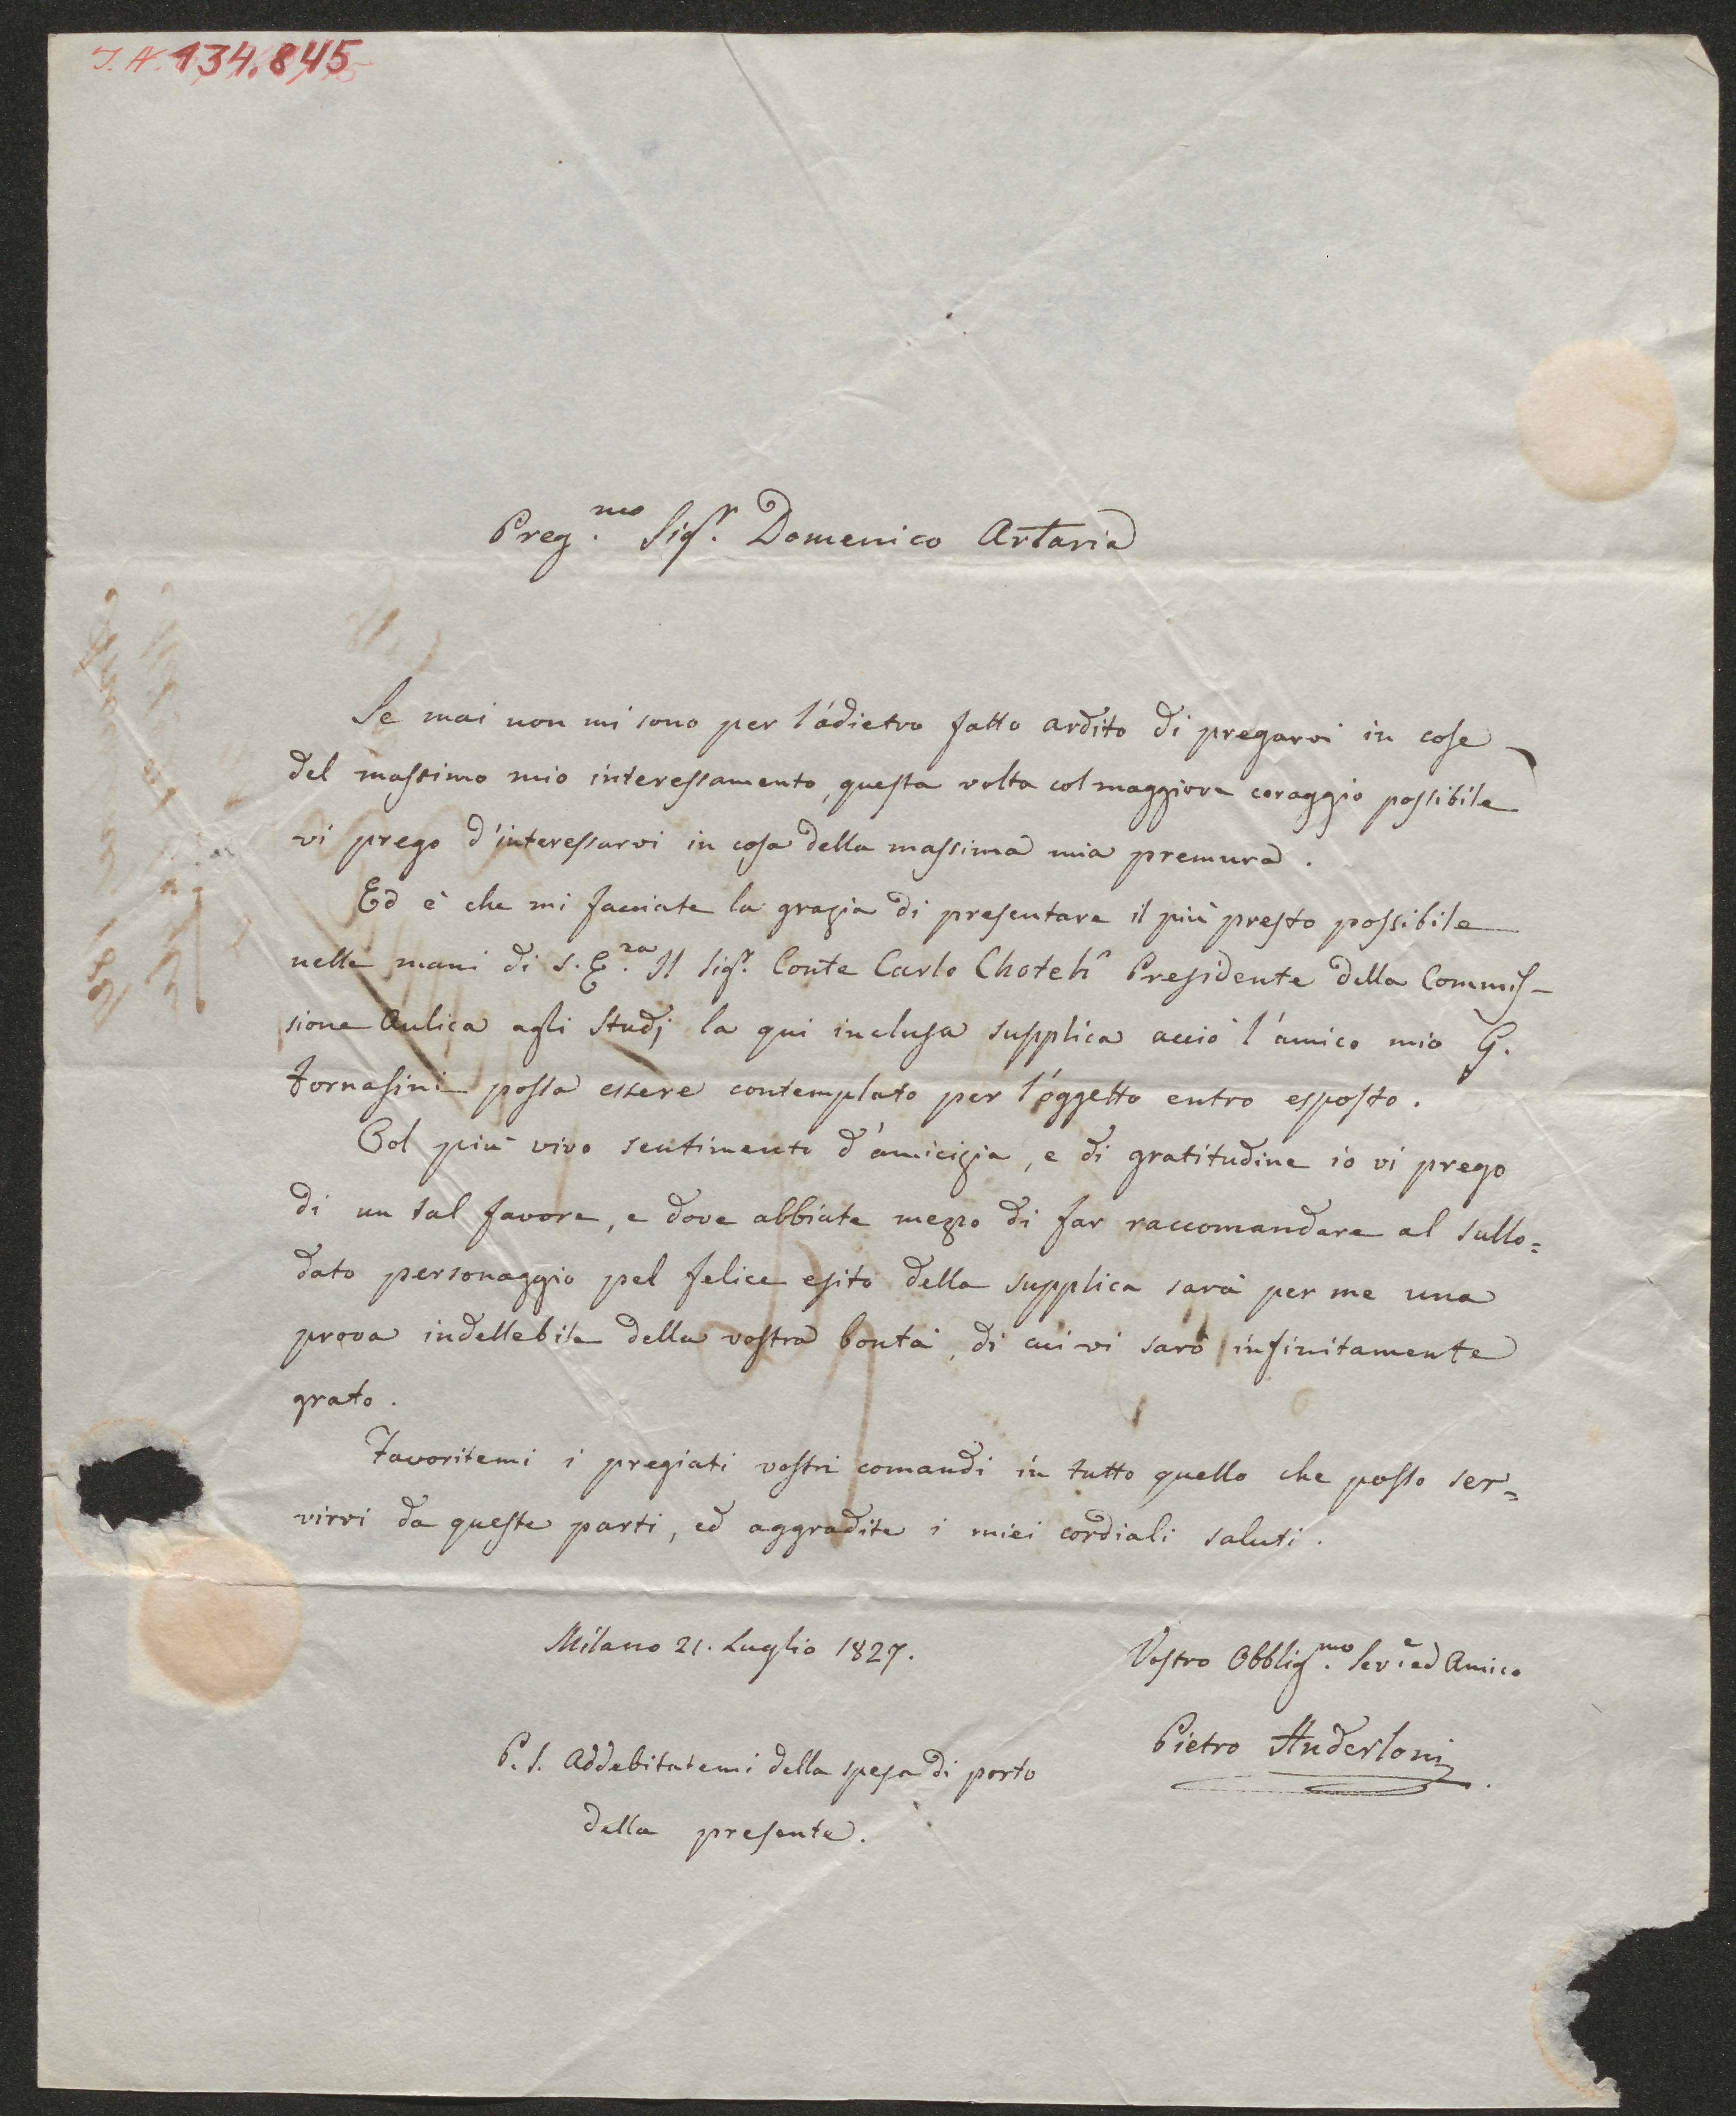 I.N. 134.845
Preg.mo Sigr. Domenico Artaria
Se mai non mi sono per l'adietro fatto ardito di pregarvi in cose
del massimo mio interessamento, questa volta col maggiore coraggio possibile
vi prego d'interessarvi in cosa della massima mia premura.
Ed è che mi facciate la grazia di presentare il più presto possibile
nelle mani di S. E.za Il Sigr. Conte Carlo Chotek Presidente della Commis-
sione Aulica agli Studj la qui inclusa supplica acciò l'amico mio G.
Fornasini possa essere contemplato per l'oggetto entro esposto.
Col più vivo sentimento d'amicizia, e di gratitudine io vi prego
di un tal favore, e dove abbiate mezzo di far raccomandare al sullo=
dato personaggio pel felice esito della supplica sarà per me una
prova indellebile della vostra bontà, di cui vi sarò infinitamente
grato.
Favoritemi i pregiati vostri comandi in tutto quello che posso ser=
virvi da queste parti, ed aggradite i miei cordiali saluti.
Milano 21. Luglio 1827.
Vostro Obblig.mo Serv.e ed Amico
Pietro Anderloni
P.S. Addebitatemi della spesa di porto
della presente.